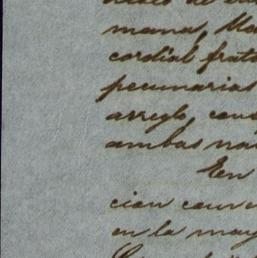 mana, Ma
cordial frat
pecuniarias
arreglo, cons
ambas na
En
cion conve
en la may